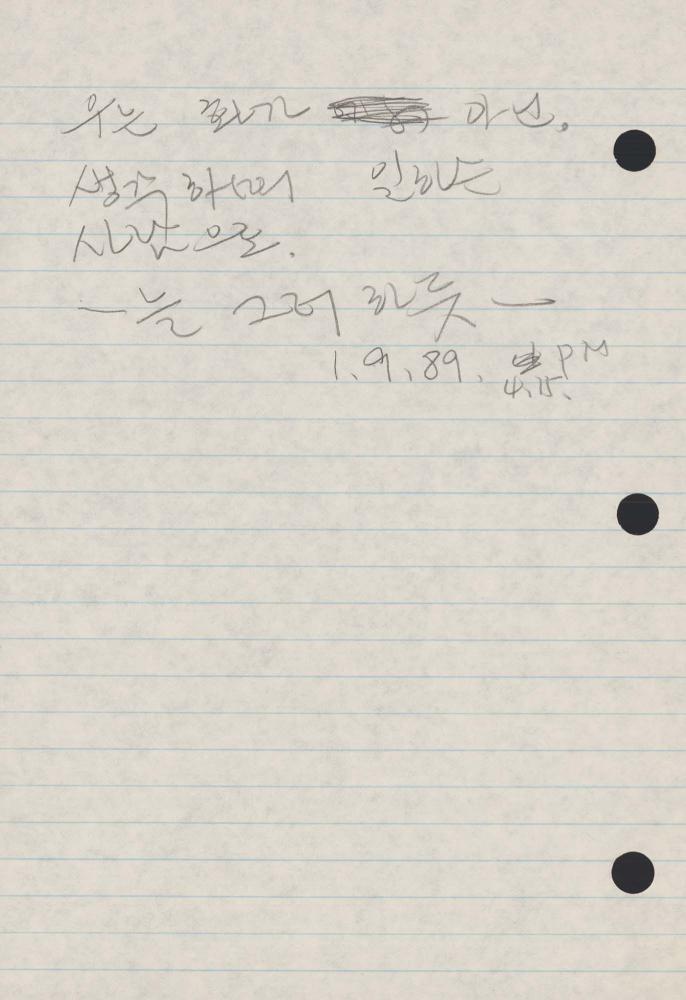 우는 화가 아닌.
생각하며 일하는
사람으로.
— 늘 그러하듯 —
1.9.89. PM
4.15.